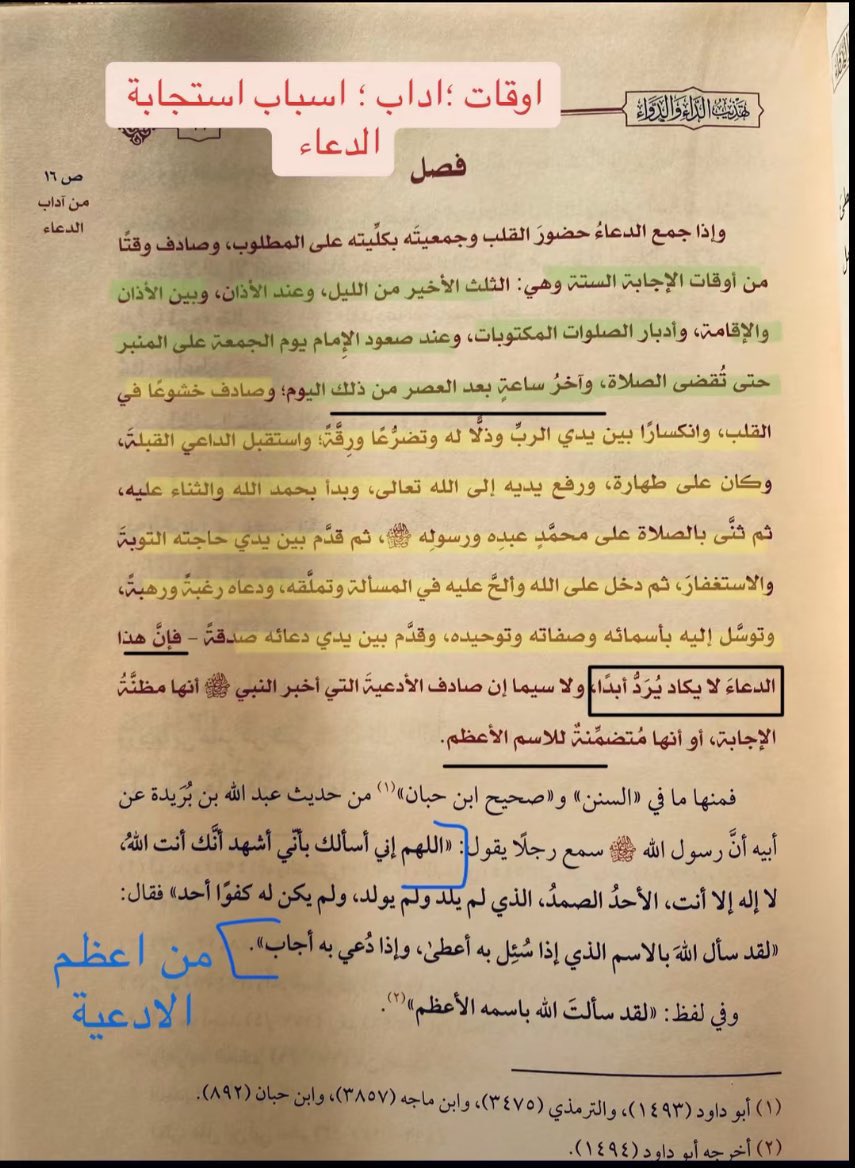 اوقات ؛اداب ؛ اسباب استجابة
الدعاء
تهذيب الداء والدواء
فصل
ص ١٦
من آداب
الدعاء
وإذا جمع الدعاءُ حضورَ القلب وجمعيتَه بكلِّيته على المطلوب، وصادف وقتًا
من أوقات الإجابة الستة وهي: الثلث الأخير من الليل، وعند الأذان، وبين الأذان
والإقامة، وأدبار الصلوات المكتوبات، وعند صعود الإمام يوم الجمعة على المنبر
حتى تُقضى الصلاة، وآخرُ ساعةٍ بعد العصر من ذلك اليوم؛ وصادف خشوعًا في
القلب، وانكسارًا بين يدي الربِّ وذلًّا له وتضرُّعًا ورِقَّةً؛ واستقبل الداعي القبلةَ،
وكان على طهارة، ورفع يديه إلى الله تعالى، وبدأ بحمد الله والثناء عليه،
ثم ثنَّى بالصلاة على محمَّدٍ عبدِه ورسولِه ﷺ، ثم قدَّم بين يدي حاجته التوبةَ
والاستغفارَ، ثم دخل على الله وألحَّ عليه في المسألة وتملَّقه، ودعاه رغبةً ورهبةً،
وتوسَّل إليه بأسمائه وصفاته وتوحيده، وقدَّم بين يدي دعائه صدقةً – فإنَّ هذا
الدعاءَ لا يكاد يُرَدُّ أبدًا، ولا سيما إن صادف الأدعيةَ التي أخبر النبي ﷺ أنها مظنَّةُ
الإجابة، أو أنها مُتضمِّنةٌ للاسم الأعظم.
فمنها ما في «السنن» و«صحيح ابن حبان»(١) من حديث عبد الله بن بُرَيدة عن
أبيه أنَّ رسول الله ﷺ سمع رجلًا يقول: «اللهم إني أسألك بأنّي أشهد أنَّك أنت اللهُ،
لا إله إلا أنت، الأحدُ الصمدُ، الذي لم يلد ولم يولد، ولم يكن له كفوًا أحد» فقال:
«لقد سأل اللهَ بالاسم الذي إذا سُئِل به أعطىٰ، وإذا دُعي به أجاب».
من اعظم
الادعية
وفي لفظ: «لقد سألتَ الله باسمه الأعظم»(٢).
(١) أبو داود (١٤٩٣)، والترمذي (٣٤٧٥)، وابن ماجه (٣٨٥٧)، وابن حبان (٨٩٢).
(٢) أخرجه أبو داود (١٤٩٤).